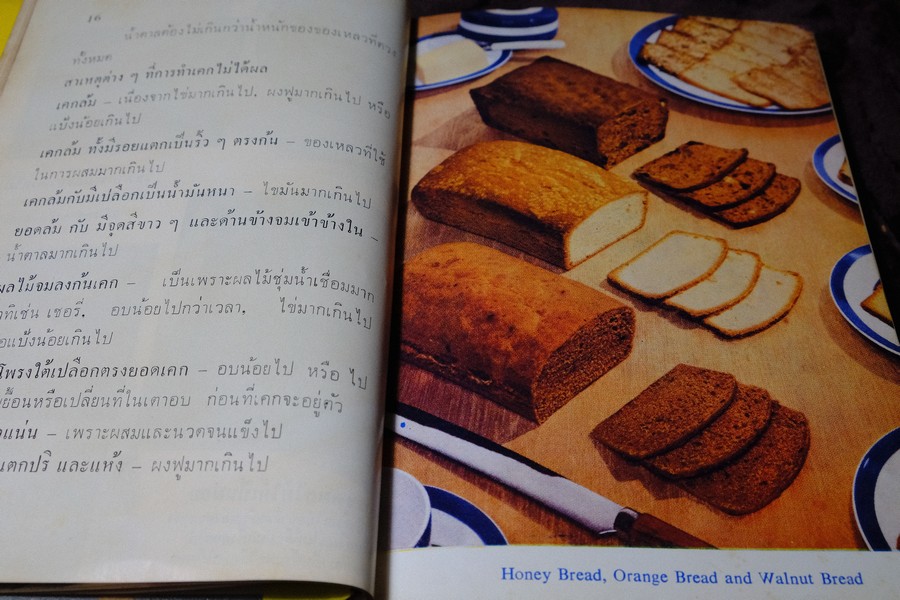 16
น้ำตาลต้องไม่เกินกว่าน้ำหนักของของเหลวที่ตวง
ทั้งหมด
สาเหตุต่าง ๆ ที่การทำเคกไม่ได้ผล
เคกล้ม – เนื่องจากไข่มากเกินไป, ผงฟูมากเกินไป หรือ
แป้งน้อยเกินไป
เคกล้ม ทั้งมีรอยแตกเป็นริ้ว ๆ ตรงก้น – ของเหลวที่ใช้
ในการผสมมากเกินไป
เคกล้มกับมีเปลือกเป็นน้ำมันหนา – ไขมันมากเกินไป
ยอดล้ม กับ มีจุดสีขาว ๆ และด้านข้างจมเข้าข้างใน –
น้ำตาลมากเกินไป
ผลไม้จมลงก้นเคก – เป็นเพราะผลไม้ชุ่มน้ำเชื่อมมาก
เช่น เชอรี่, อบน้อยไปกว่าเวลา, ไข่มากเกินไป
แป้งน้อยเกินไป
โพรงใต้เปลือกตรงยอดเคก – อบน้อยไป หรือ ไป
หรือเปลี่ยนที่ในเตาอบ ก่อนที่เคกจะอยู่ตัว
แน่น – เพราะผสมและนวดจนแข็งไป
แตกปริ และแห้ง – ผงฟูมากเกินไป
Honey Bread, Orange Bread and Walnut Bread